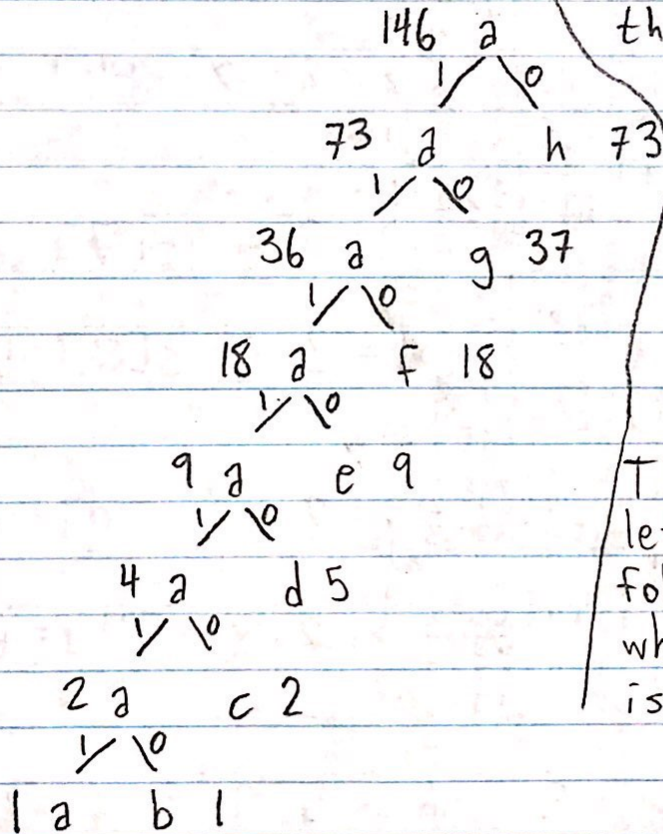 146 a th
1 0
73 a h 73
1 0
36 a g 37
1 0
18 a f 18
1 0
9 a e 9 T
1 0 le
4 a d 5 fo
1 0 wh
2 a c 2 is
1 0
1 a b 1